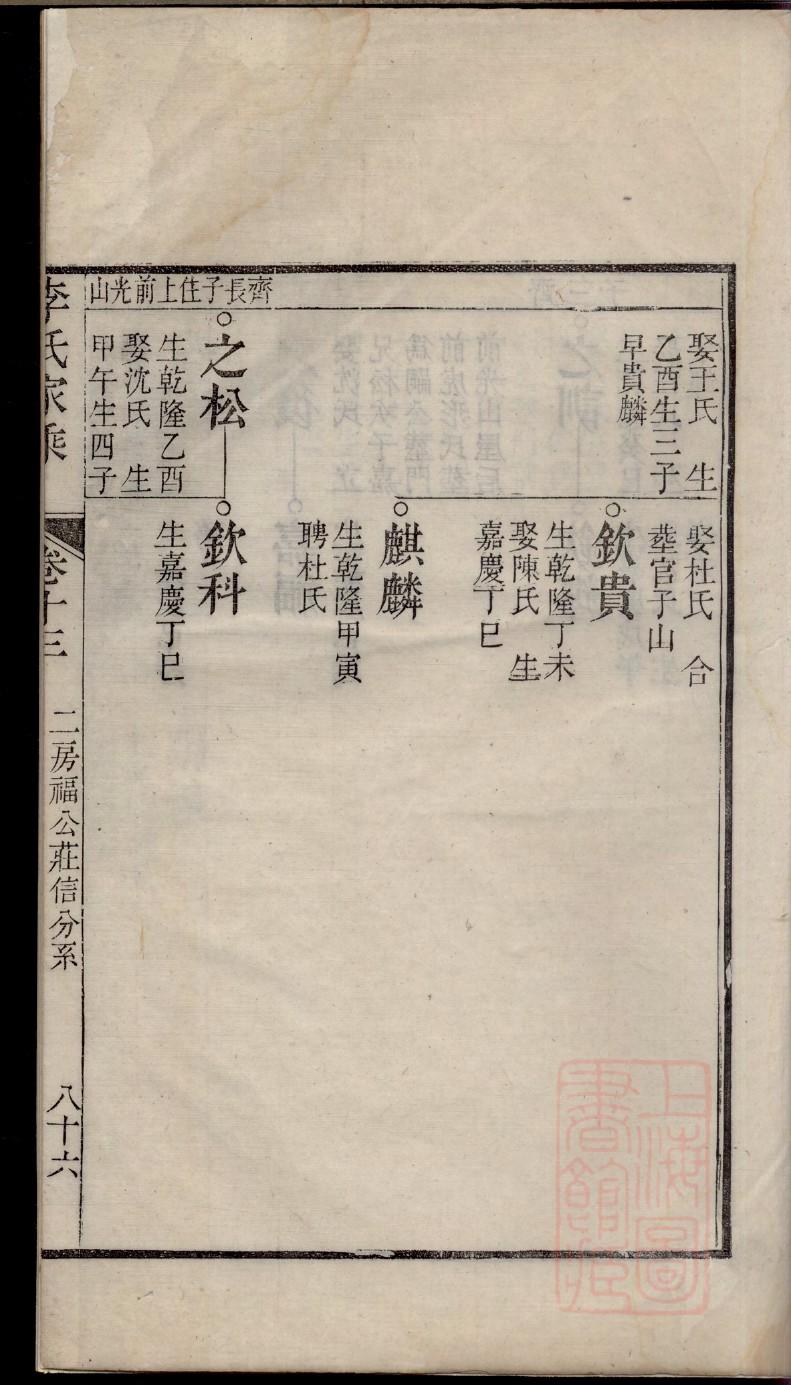 娶王氏　生
乙酉生三子
早貴麟
娶杜氏　合
塟官子山
欽貴
生乾隆丁未
娶陳氏　生
嘉慶丁巳
麒麟
生乾隆甲寅
聘杜氏
齊長子住上前光山
之松
生乾隆乙酉
娶沈氏　生
甲午生四子
欽科
生嘉慶丁巳
李氏家乘
卷十三
二房福公莊信分系
八十六
上海圖書館藏